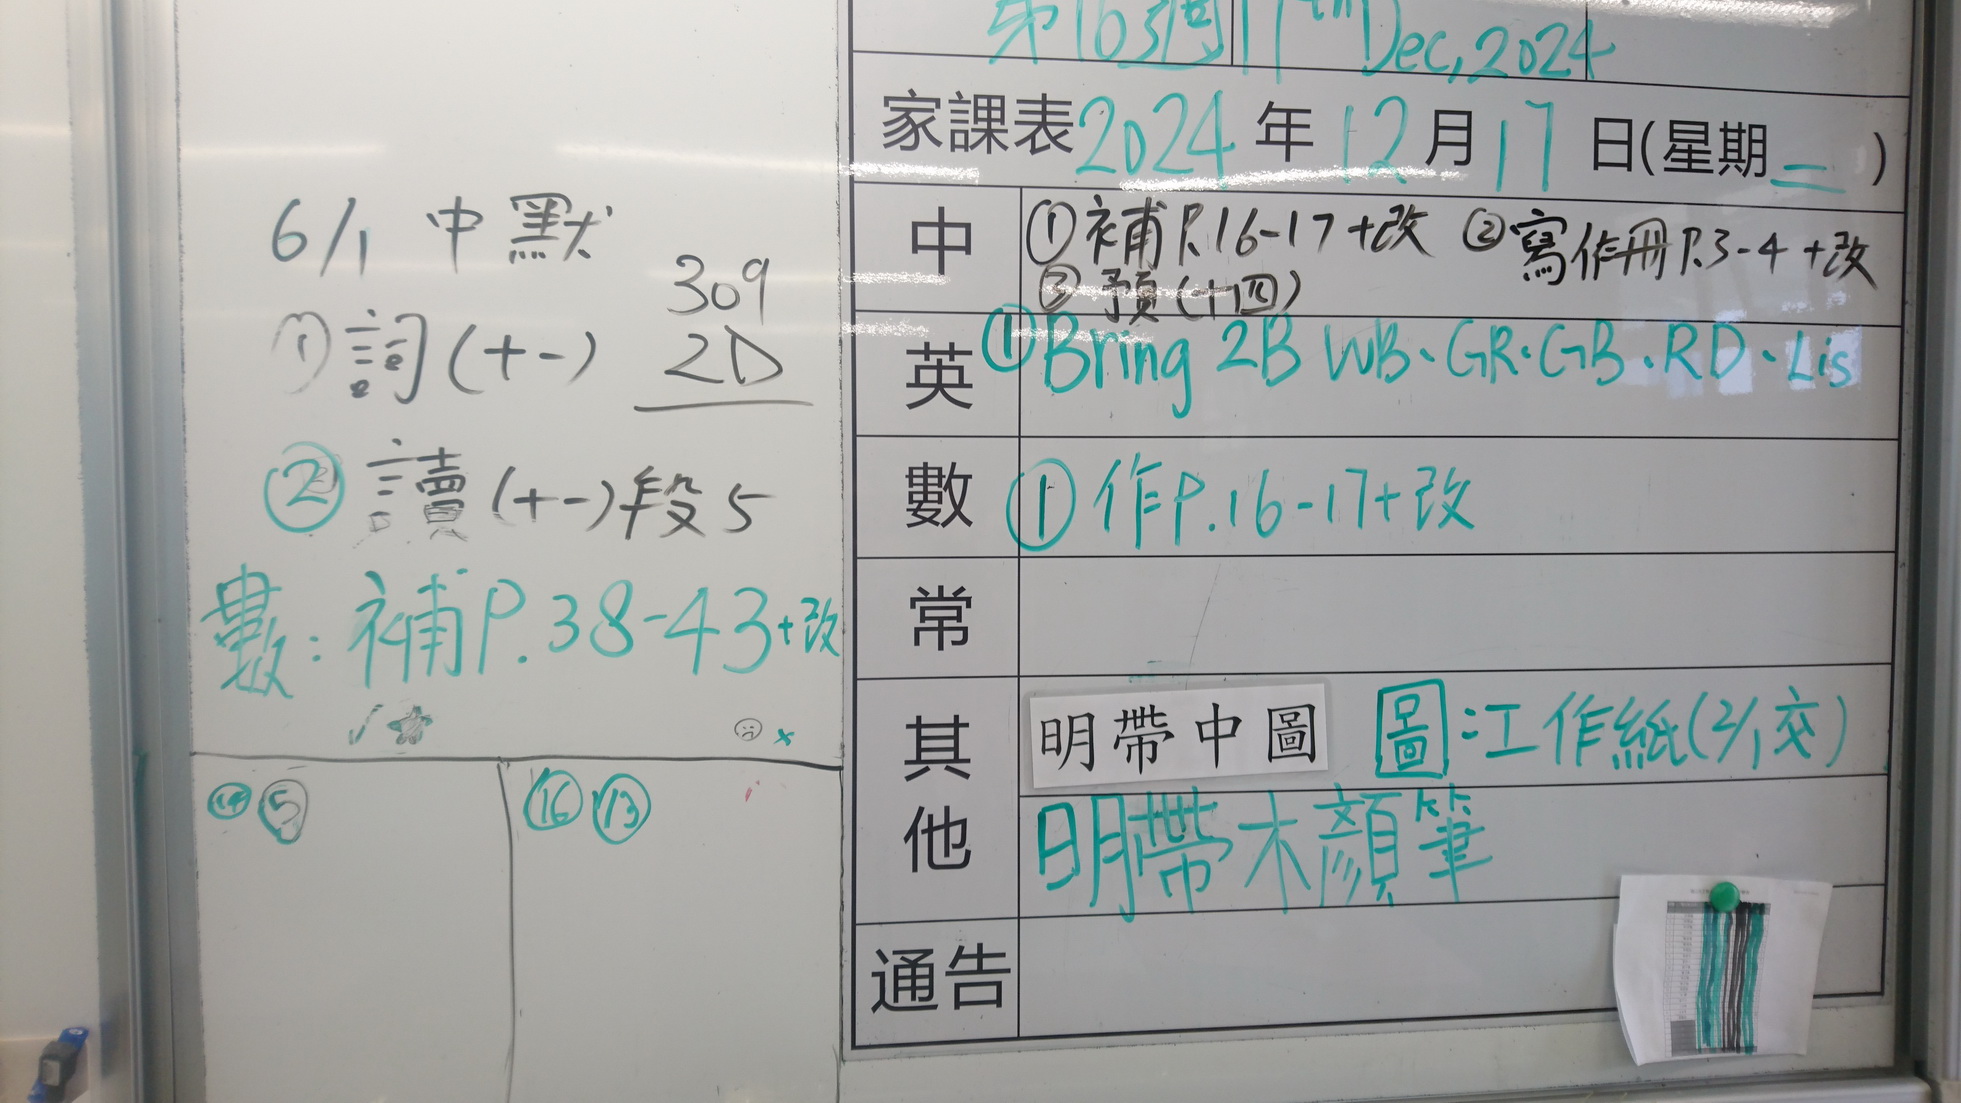 6/1 中默
309
①詞(十一) 2D
②讀(十一)段5
數:補P.38-43+改
⑭⑤
⑯⑬
第16週 17th Dec, 2024
家課表2024年12月17日(星期二)
中 ①補P.16-17+改 ②寫作冊P.3-4+改
③預(十四)
英 ①Bring 2B WB、GR、GB、RD、Lis
數 ①作P.16-17+改
常
其他 明帶中圖 圖:工作紙(2/1交)
明帶木顏筆
通告